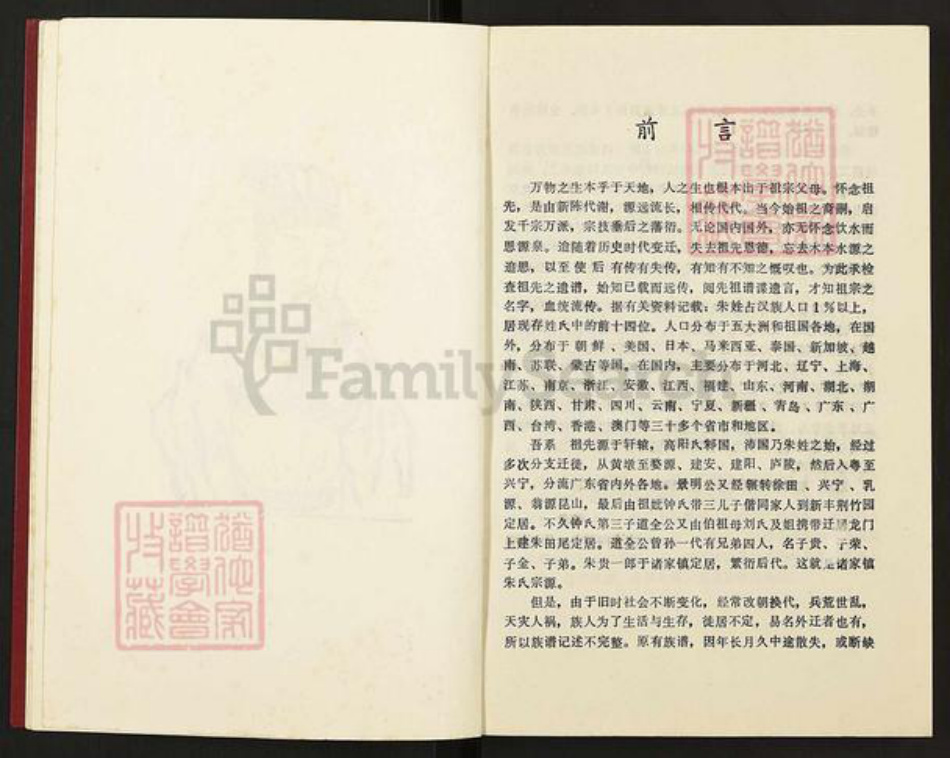 前言
万物之生本乎于天地，人之生也根本出于祖宗父母。怀念祖
先，是由新陈代谢，源远流长，相传代代。当今始祖之裔嗣，启
发千宗万派，宗技垂后之蕃衍。无论国内国外，亦无怀念饮水而
思源泉。迨随着历史时代变迁，失去祖先恩德，忘去木本水源之
追思，以至使后有传有失传，有知有不知之慨叹也。为此承检
查祖先之遗谱，始知已载而远传，阅先祖谱谍遗言，才知祖宗之
名字，血统流传。据有关资料记载：朱姓占汉族人口1％以上，
居现存姓氏中的前十四位。人口分布于五大洲和祖国各地，在国
外，分布于朝鲜、美国、日本、马来西亚、泰国、新加坡、越
南、苏联、蒙古等国。在国内，主要分布于河北、辽宁、上海、
江苏、南京、浙江、安徽、江西、福建、山东、河南、湖北、湖
南、陕西、甘肃、四川、云南、宁夏、新疆、青岛、广东、广
西、台湾、香港、澳门等三十多个省市和地区。
吾系 祖先源于轩辕，高阳氏邾国，沛国乃朱姓之始，经过
多次分支迁徙，从黄墩至婺源、建安、建阳、庐陵，然后入粤至
兴宁，分流广东省内外各地。景明公又经辗转徐田、兴宁、乳
源、翁源昆山，最后由祖妣钟氏带三儿子偕同家人到新丰荆竹园
定居。不久钟氏第三子道全公又由伯祖母刘氏及姐携带迁居龙门
上建朱田尾定居。道全公曾孙一代有兄弟四人，名子贵、子荣、
子金、子弟。朱贵一郎于诸家镇定居，繁衍后代。这就是诸家镇
朱氏宗源。
但是，由于旧时社会不断变化，经常改朝换代，兵荒世乱，
天灾人祸，族人为了生活与生存，徙居不定，易名外迁者也有，
所以族谱记述不完整。原有族谱，因年长月久中途散失，或断缺
FamilySearch
猶他家
譜學會
收藏